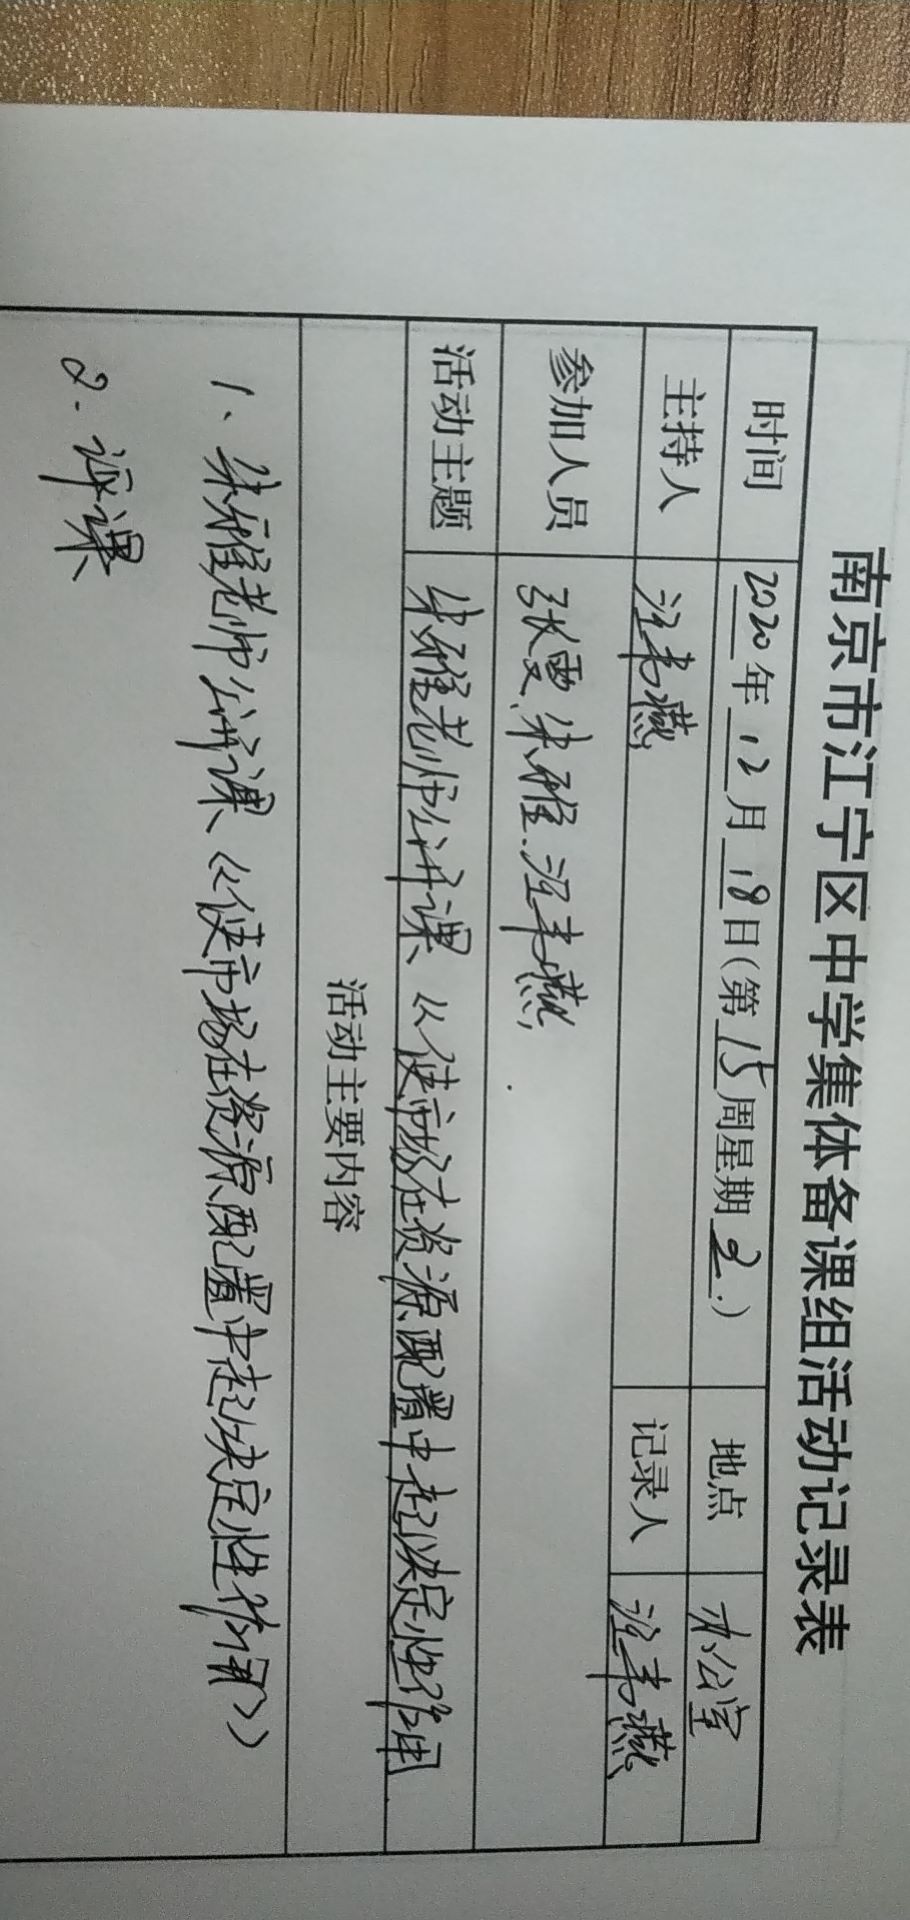 南京市江宁区中学集体备课组活动记录表
时间 2020年12月18日(第15周星期 .) 地点 办公室
主持人 汪韦燕 记录人 汪韦燕
参加人员 张雯、朱雅.汪韦燕.
活动主题 朱雅老师公开课《使市场在资源配置中起决定性作用
活动主要内容
1、朱雅老师公开课《使市场在资源配置中起决定性作用》
2.评课